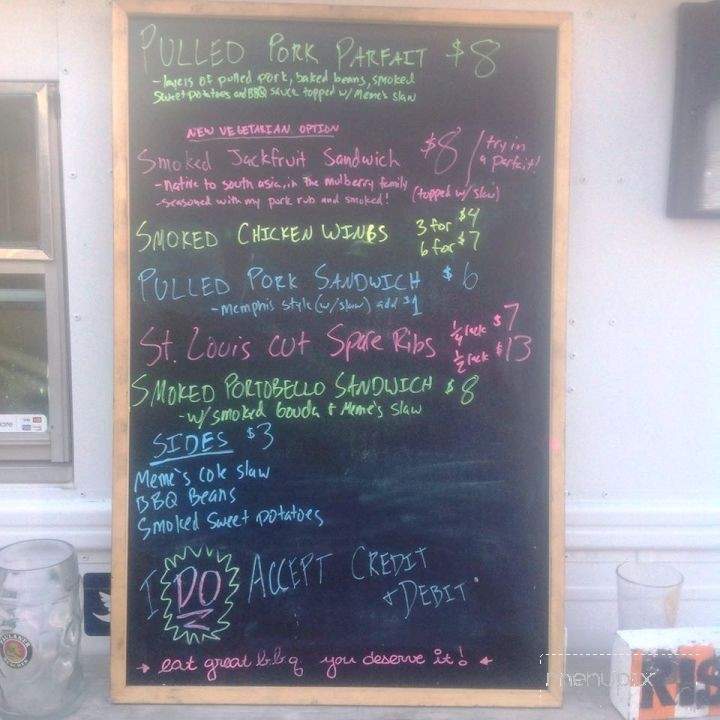 PULLED PORK PARFAIT $8
-layers of pulled pork, baked beans, smoked
sweet potatoes and BBQ sauce topped w/ Meme's slaw
NEW VEGETARIAN OPTION
Smoked Jackfruit Sandwich $8 / try in
a parfait!
-native to south asia, in the mulberry family (topped w/ slaw)
-seasoned with my pork rub and smoked!
SMOKED CHICKEN WINGS 3 for $4
6 for $7
PULLED PORK SANDWICH $6
-memphis style (w/ slaw) add $1
St. Louis cut Spare Ribs 1/4 rack $7
1/2 rack $13
SMOKED PORTOBELLO SANDWICH $8
-w/ smoked Gouda + Meme's slaw
SIDES $3
Meme's cole slaw
BBQ Beans
Smoked Sweet potatoes
I DO ACCEPT CREDIT
+ DEBIT
eat great b.b.q you deserve it!
PAULANER
menupix
RIS